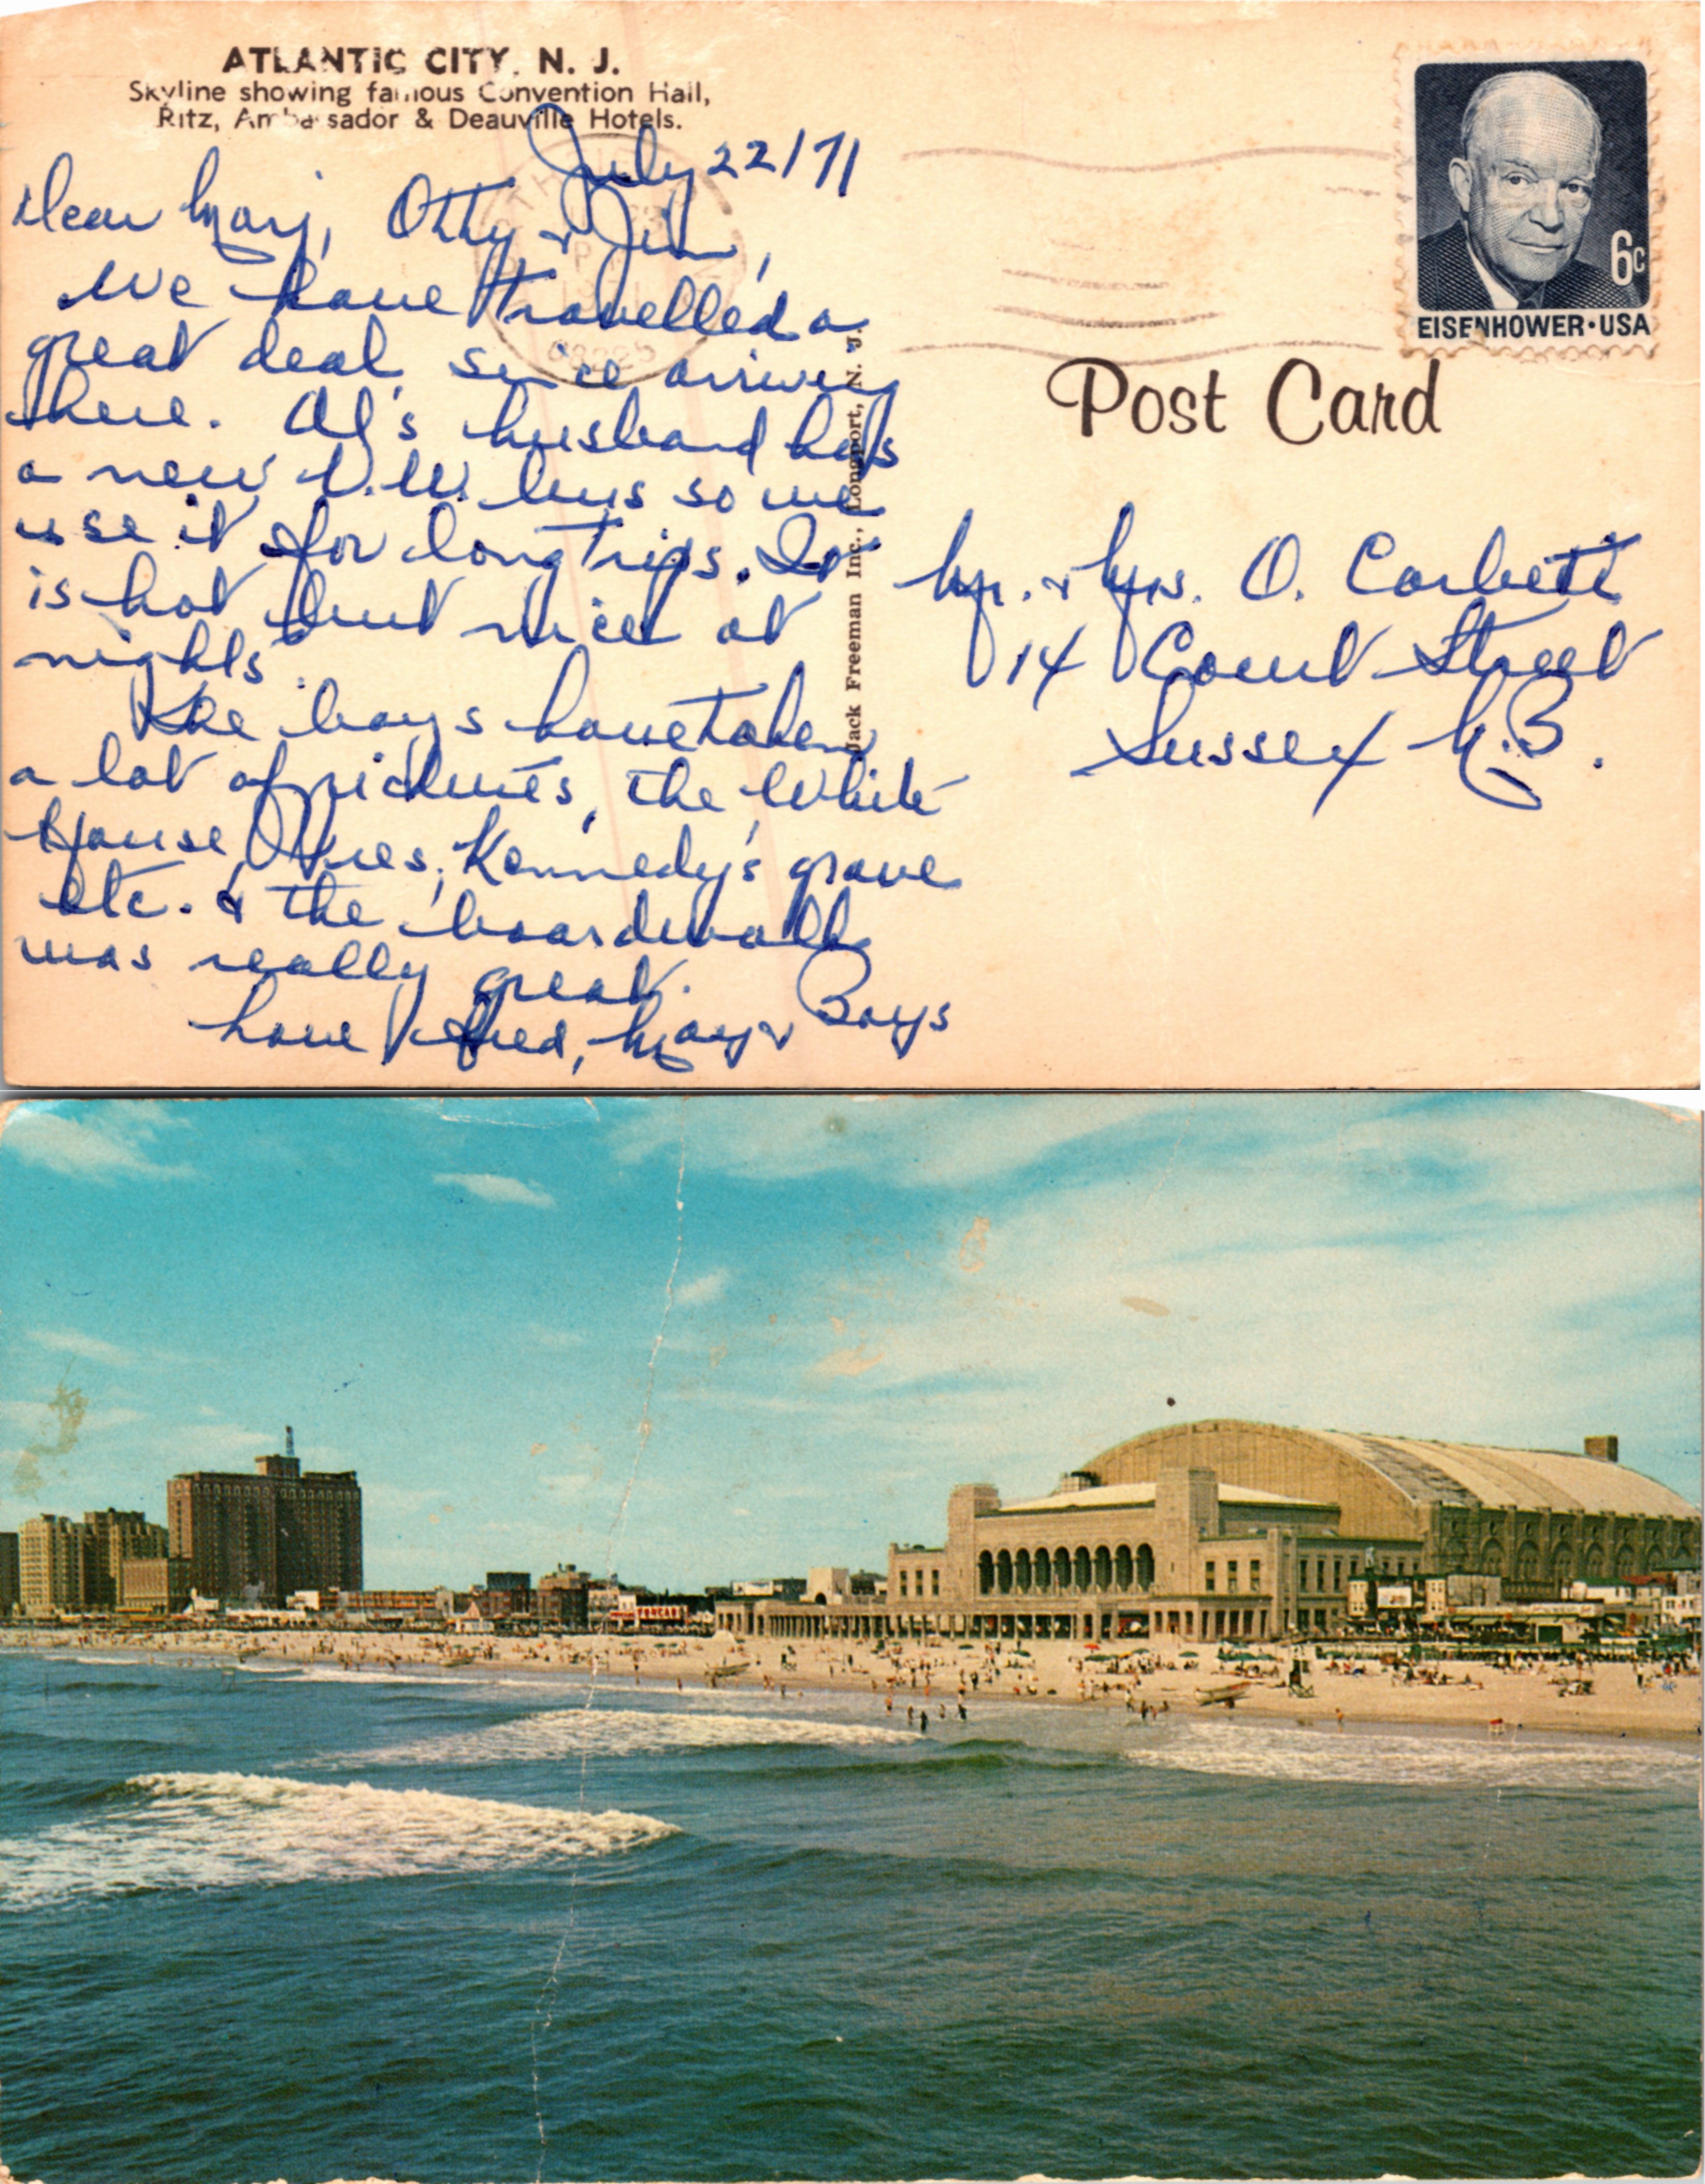 ATLANTIC CITY, N. J.
Skyline showing famous Convention Hall,
Ritz, Ambassador & Deauville Hotels.
July 22/71
Dear Marj, Otty & Jim,
We have travelled a
great deal since arriving
here. Al's husband has
a new V.W. bus so we
use it for long trips. It
is hot but nice at
nights.
The boys have taken
a lot of pictures, the White
House, Pres. Kennedy's grave
etc. & the boardwalk
was really great.
Love Fred, May & Boys
Jack Freeman Inc., Longport, N. J.
1971
08225
6c
EISENHOWER·USA
Post Card
Mr. & Mrs. O. Corbett
14 Court Street
Sussex N.B.